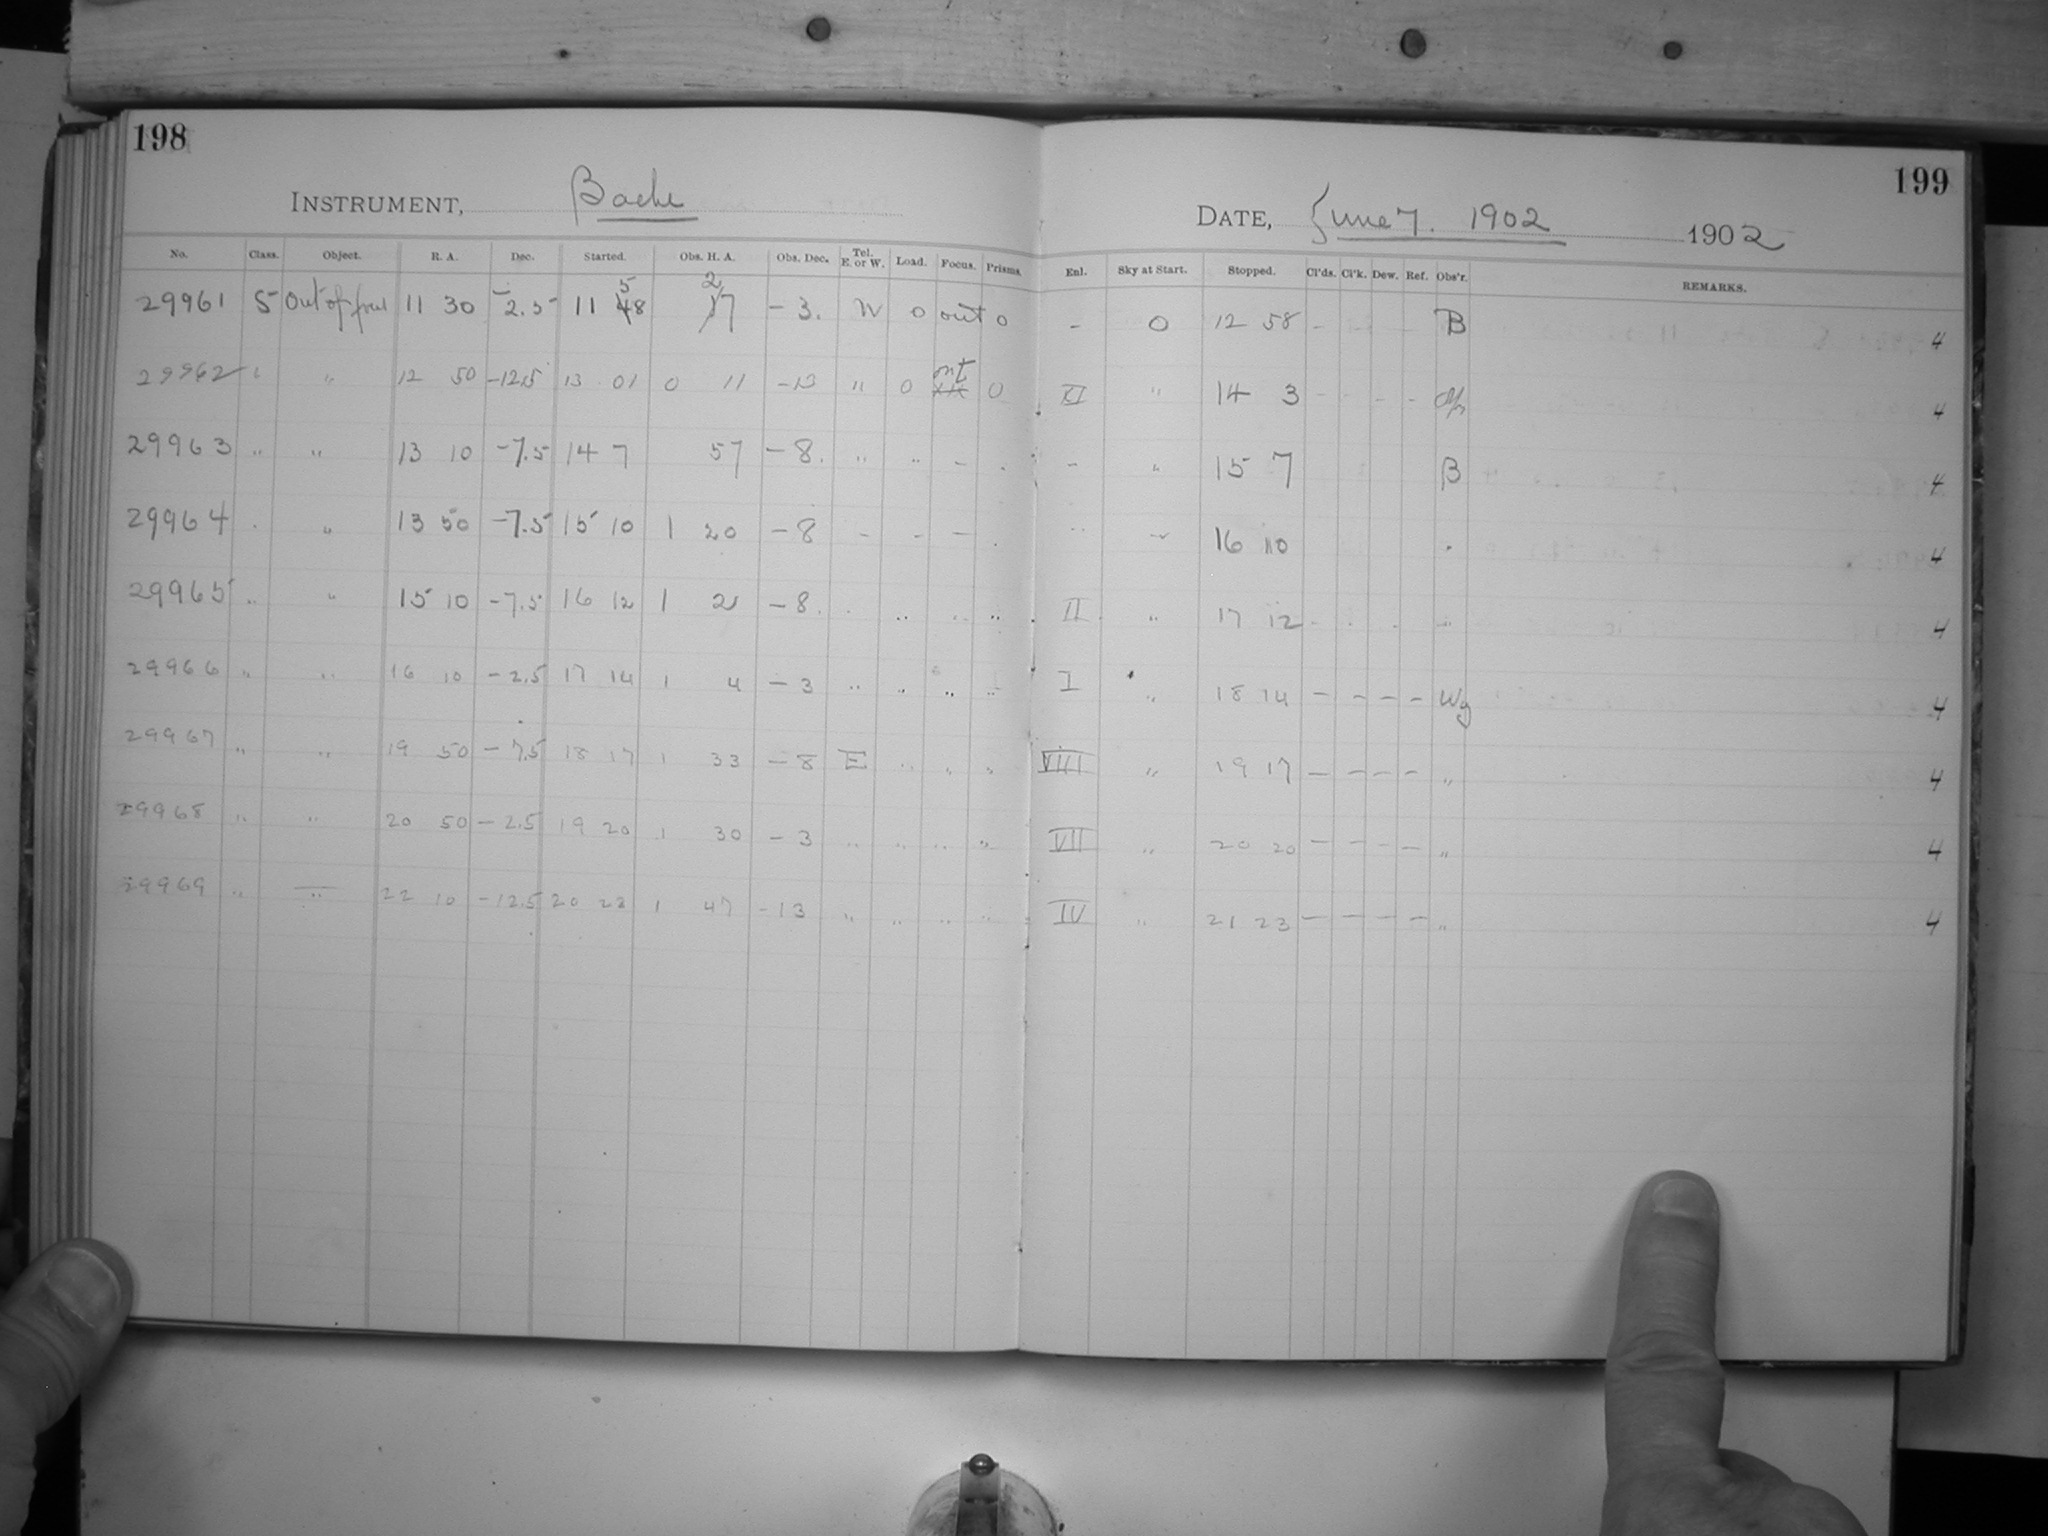 198
199
INSTRUMENT, Bache
DATE, June 7. 1902 1902
No. Class. Object. R. A. Dec. Started. Obs. H. A. Obs. Dec. Tel. E. or W. Load. Focus. Prisms. Enl. Sky at Start. Stopped. Cl'ds. Cl'k. Dew. Ref. Obs'r. REMARKS.
29961 5 Out of focus 11 30 -2.5 11 58 27 -3. W 0 out 0 - 0 12 58 - - B 4
29962 " 12 50 -12.5 13 01 0 11 -13 " 0 out 0 XI " 14 3 - - - - 4
29963 " " 13 10 -7.5 14 7 57 -8. " " - . - " 15 7 B 4
29964 . " 13 50 -7.5 15 10 1 20 -8 - - - . " 16 10 . 4
29965 " " 15 10 -7.5 16 12 1 21 -8. . " " " II " 17 12 - . . " 4
29966 " " 16 10 -2.5 17 14 1 4 -3 " " " " I " 18 14 - - - - Wg 4
29967 " " 19 50 -7.5 18 17 1 33 -8 E " " " VIII " 19 17 - - - - " 4
29968 " " 20 50 -2.5 19 20 1 30 -3 " " " " VII " 20 20 - - - - " 4
29969 " " 22 10 -12.5 20 23 1 47 -13 " " " " IV " 21 23 - - - - " 4